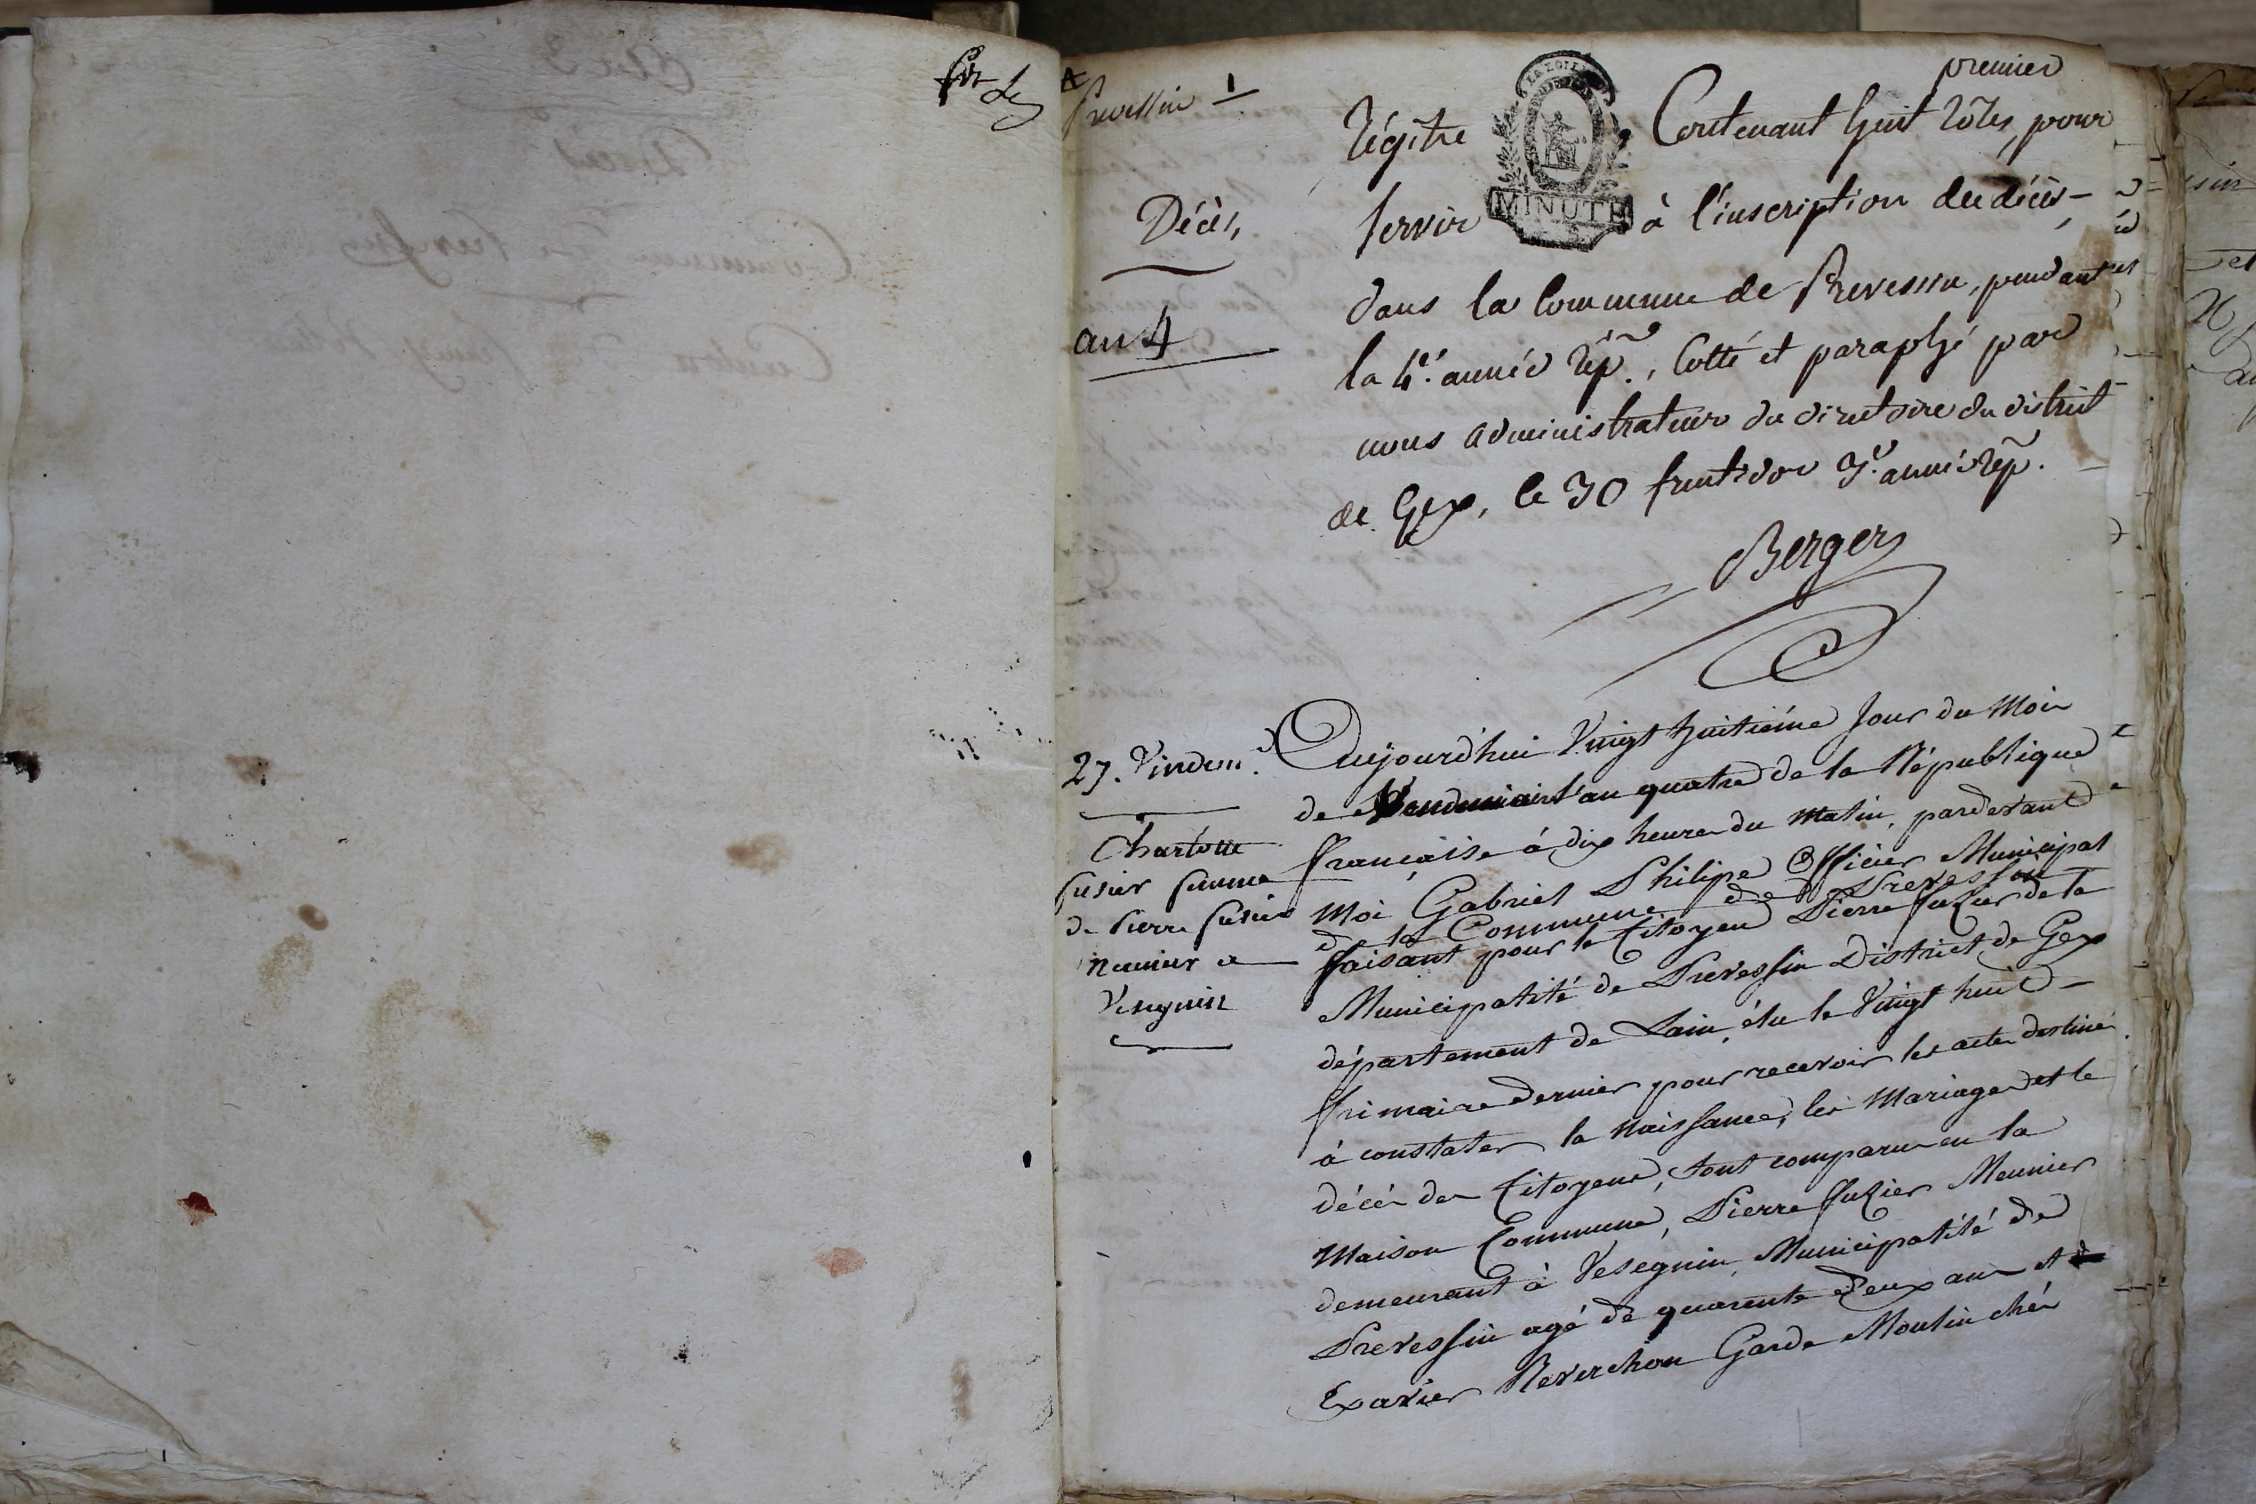 Prevessin 1
Décès,
an 4
premier
Régitre Contenant huit rôles, pour
LA LOI
MINUTE
servir à l'inscription des décès
dans la Commune de Prevessin, pendant
la 4e. année rép., Cotté et paraphé par
nous administrateur du directoire du district
de Gex, le 30 fructidor 3e. année rép.
Berger
27. Vindem.
Charlotte
fusier femme
de Pierre fusier
meunier a
Vesegnin
Aujourd'hui Vingt huitiéme Jour du Mois
de Vendemiaire l'an quatre de la République
française à dix heures du matin, pardevant
Moi Gabriel Philipe Officier Municipal
de la Commune de Prevessin
faisant pour le Citoyen Pierre fuzier de la
Municipalité de Prevessin District de Gex
département de Lain, élu le Vingt huit
frimaire dernier pour recevoir les actes destiné
à constater la naissance, les Mariages et le
décés des Citoyens, sont comparu en la
Maison Commune, Pierre fuzier Meunier
demeurant à Vesegnin Municipalité de
Prevessin agé de quarente deux ans et
Exavier Reverchon Garde Moulin chés